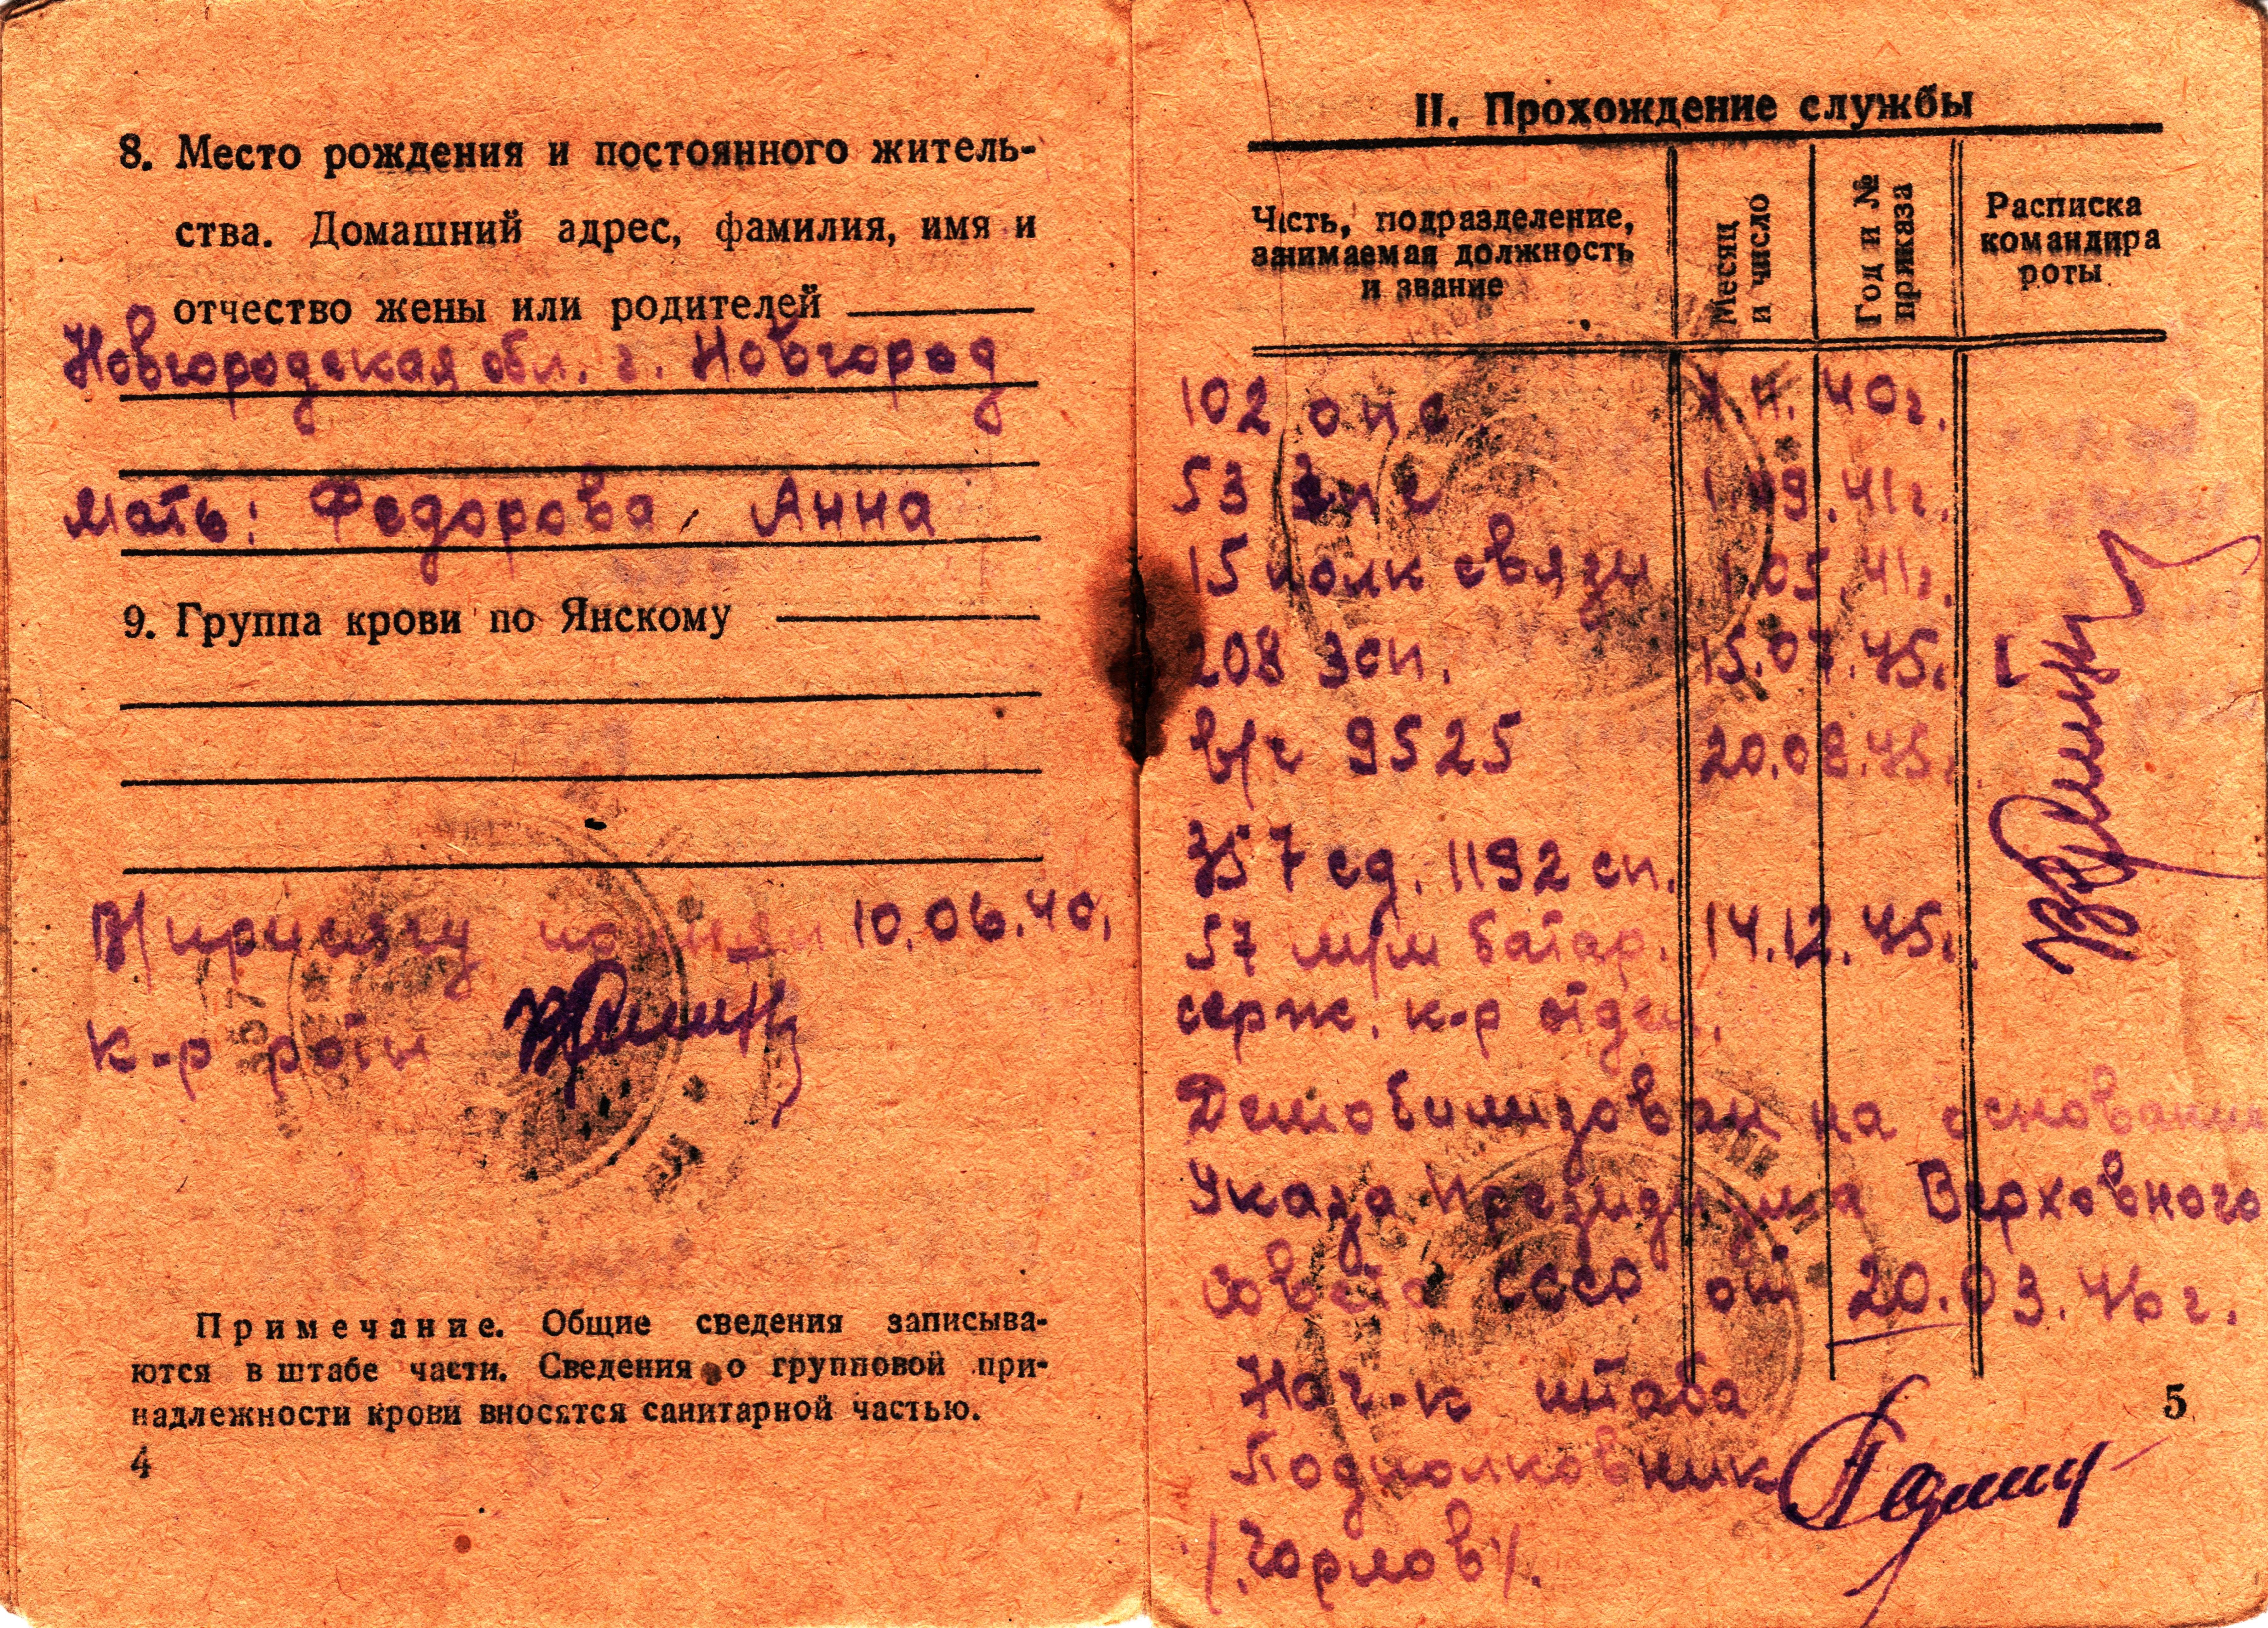 8. Место рождения и постоянного житель-
ства. Домашний адрес, фамилия, имя и
отчество жены или родителей
Новгородская обл. г. Новгород
Мать: Федорова, Анна
9. Группа крови по Янскому
В/присягу принял 10.06.40.
к-р роты
357
Примечание. Общие сведения записыва-
ются в штабе части. Сведения о групповой при-
надлежности крови вносятся санитарной частью.
4
II. Прохождение службы
Часть, подразделение, занимаемая должность и звание
Месяц и число
Год и № приказа
Расписка командира роты
102 40г.
53 41г.
15 полк связи 1.05.41г.
208 зсп. 15.07.45г.
в/ч 9525 20.09.45г.
357 сд. 1192 сп.
57 м/м батар. 14.12.45г.
серж. к-р отдел.
Демобилизован на основании
Указа Президиума Верховного
Совета СССР от 20.03.46г.
Нач-к штаба
Подполковник
/Горлов/.
5